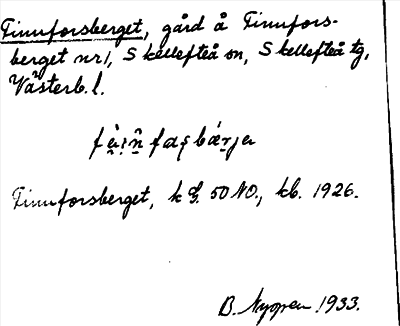 Finnforsberget, gård å Finnfors-
berget nr 1, Skellefteå sn, Skellefteå tg,
Västerb. l.
Finnforsberget, k 50 NO., kb. 1926.
B. Nygren 1933.